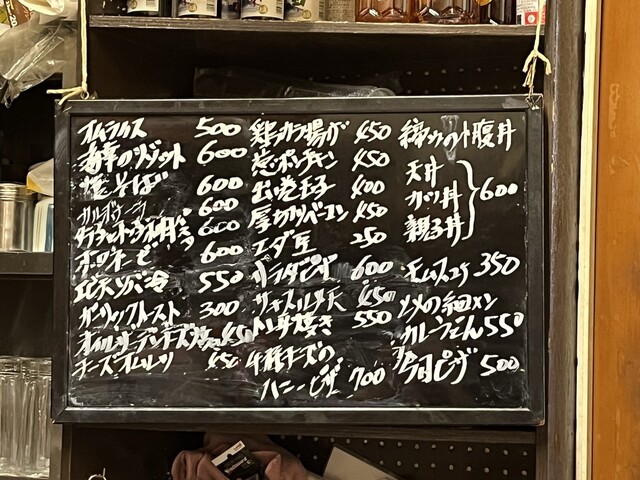 オムライス 500
海幸のリゾット 600
焼そば 600
カルボナーラ 600
600
ボロネーゼ 600
550
ガーリックトースト 300
オイルサーデンチーズ 450
チーズオムレツ 450
鶏カラ揚げ 450
窓ポンチキン 450
出し巻玉子 400
厚切りベーコン 450
エダ豆 250
サラダピザ 600
450
550
4種チーズの
ハニーピザ 700
締めのプチ腹丼
天丼
カツ丼
親子丼
600
350
〆の細メン
カレーうどん 550
今日ピザ 500